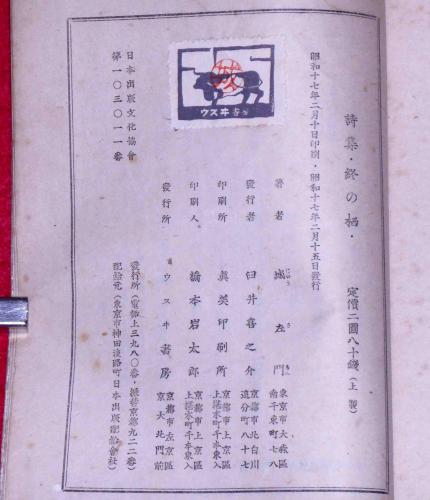 詩集・終の栖・
定價二圓八十錢（上製）
昭和十七年二月十日印刷・昭和十七年二月十五日發行
著者 城左門 東京市大森區南千束町七八
發行者 臼井喜之介 京都市北白川追分町八十七
印刷所 眞美印刷所 京都市上京區
印刷人 橋本岩太郎 京都市上京區
發行所 ウスヰ書房 京都市左京區京大北門前
發行所（電話上三九八〇番・振替京都九二二番）
配給元（東京市神田淡路町日本出版配給會社）
日本出版文化協會
第一〇三〇一一番
城
ウスヰ